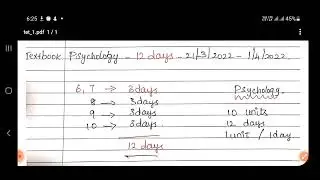 6:25
45%
tet_1.pdf 1 / 1
Textbook Psychology - 12 days - 21/3/2022 - 1/4/2022
6, 7 → 3days Psychology
8 → 3days 10 units
9 → 3days 12 days
10 → 3days 1 unit / 1day
12 days